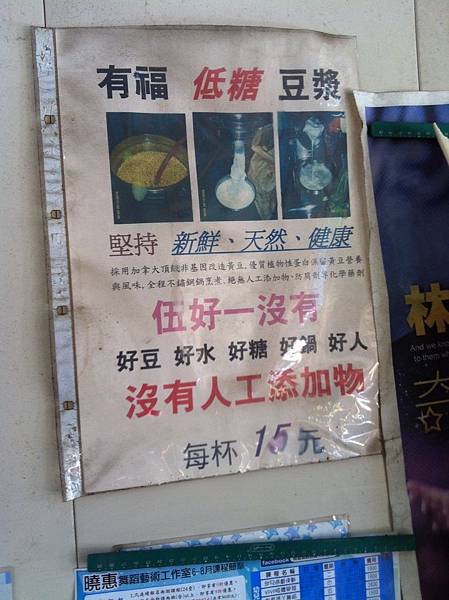 有福 低糖 豆漿
堅持 新鮮、天然、健康
採用加拿大頂級非基因改造黃豆,優質植物性蛋白保留黃豆營養
與風味,全程不鏽鋼鍋烹煮,絕無人工添加物、防腐劑等化學藥劑
伍好一沒有
好豆 好水 好糖 好鍋 好人
沒有人工添加物
每杯 15 元
林
And we know
to them wh
大
曉惠舞蹈藝術工作室6-8月課程簡章
facebook